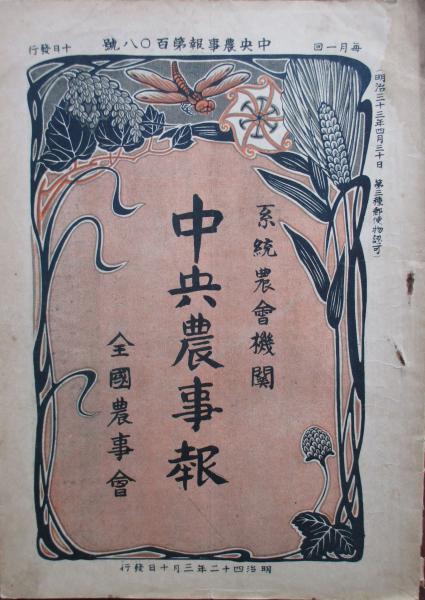 每月一回
中央農事報第百〇八號
十日發行
(明治三十三年四月三十日 第三種郵便物認可)
系統農會機關
中央農事報
全國農事會
明治四十二年三月十日發行